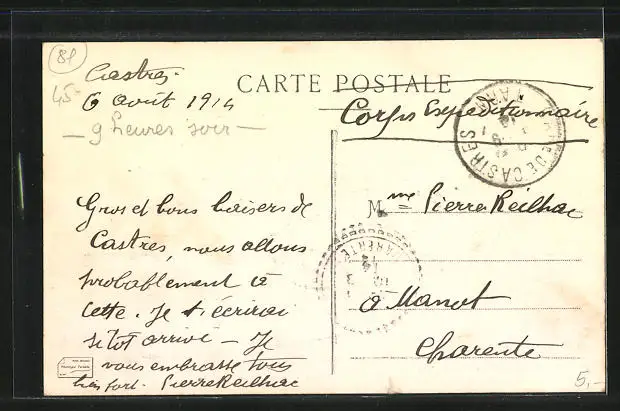 81
45
Castres.
6 août 1914
— 9 heures soir —
CARTE POSTALE
Corps Expéditionnaire
GARE DE CASTRES
TARN
Gros et bons baisers de
Castres, nous allons
probablement à
Cette. Je t'écrirai
sitôt arrivé – Je
vous embrasse tous
bien fort. Pierre Reilhac
Mme Pierre Reilhac
à Manot
Charente
CHARENTE
5,-